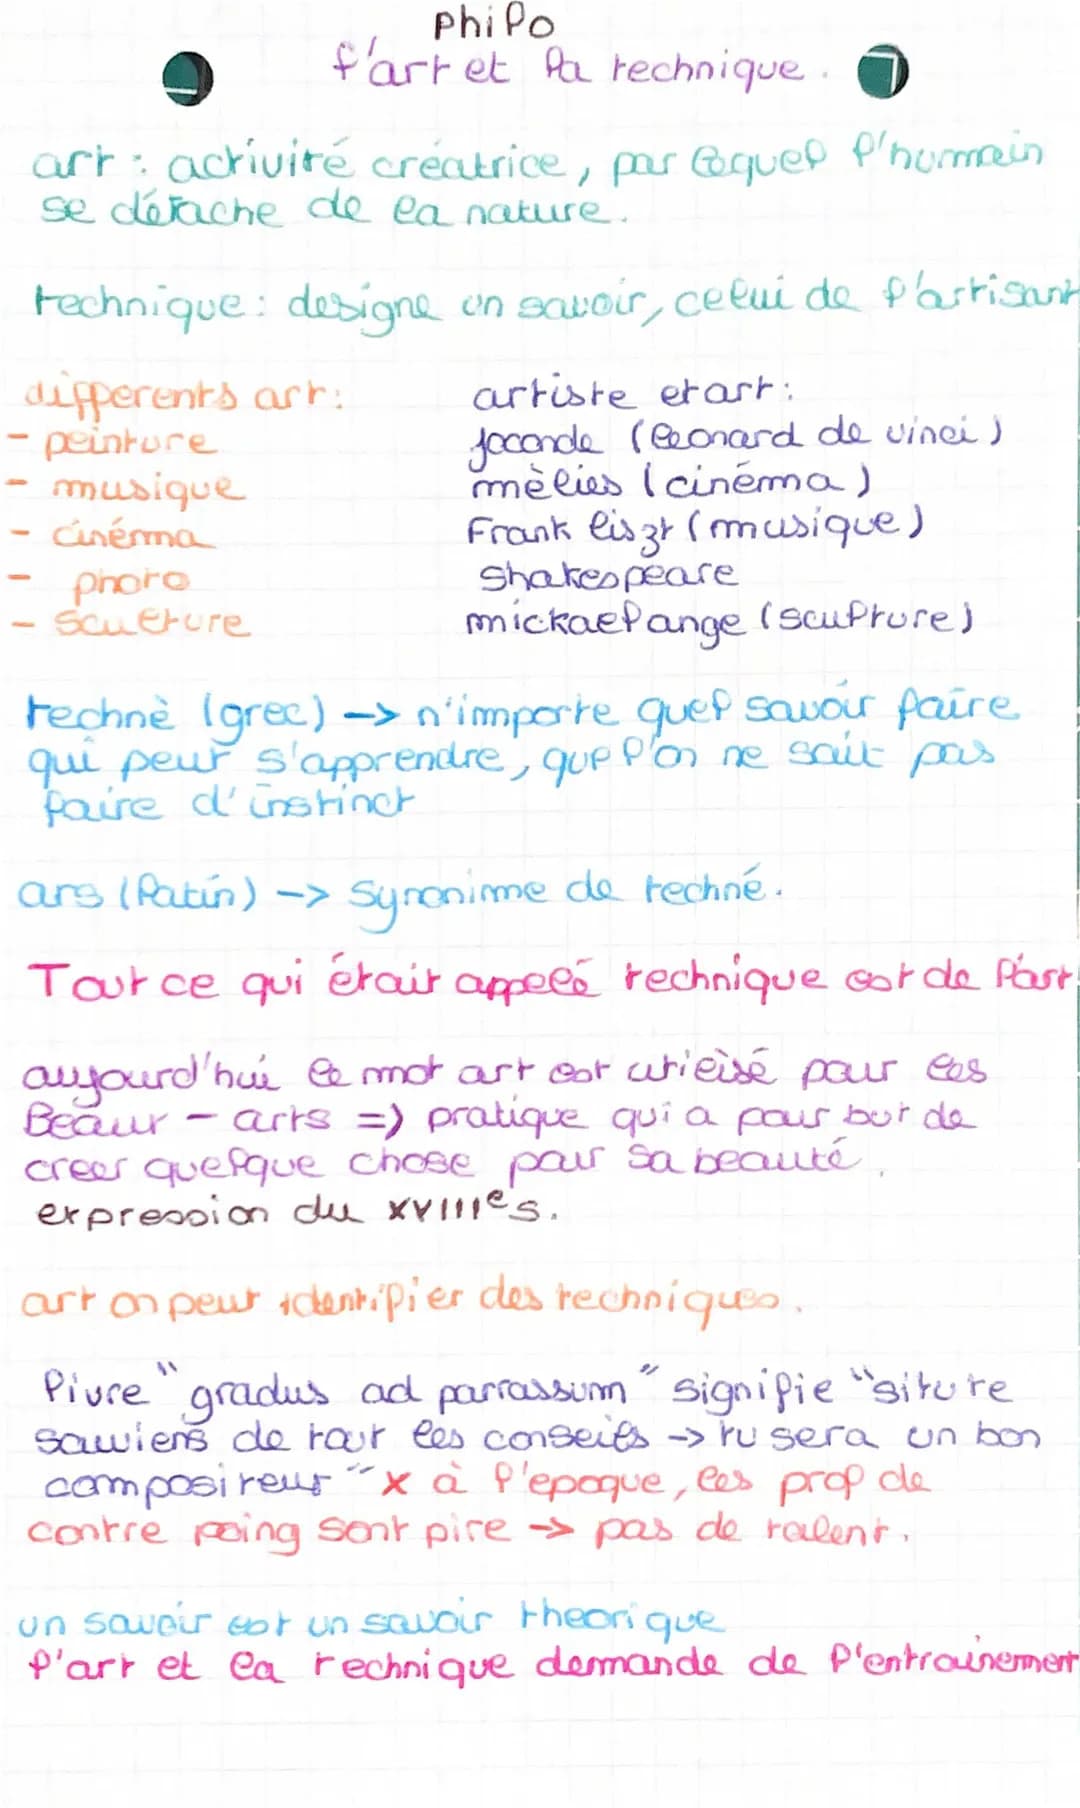 philo
l'art et la technique.
art : activité créatrice, par lequel l'humain
se détache de la nature.
technique : designe un savoir, celui de l'artisant
differents art :
- peinture
- musique
- cinéma
- photo
- sculture
artiste et art :
joconde (leonard de vinci)
mèlies (cinéma)
Frank liszt (musique)
Shakespeare
mickael ange (sculpture)
technè (grec) -> n'importe quel savoir faire
qui peut s'apprendre, que l'on ne sait pas
faire d'instinct
ars (latin) -> Synonime de techné.
Tout ce qui était appelé technique est de l'art
aujourd'hui le mot art est utilisé pour les
Beaux - arts => pratique qui a pour but de
creer quelque chose pour sa beauté.
expression du XVIIIe s.
art on peut identifier des techniques.
livre "gradus ad parrassum" signifie "si tu te
souviens de tout les conseils -> tu sera un bon
compositeur" x à l'epoque, les prof de
contre poing sont pire -> pas de talent.
un savoir est un savoir theorique
l'art et la technique demande de l'entrainement